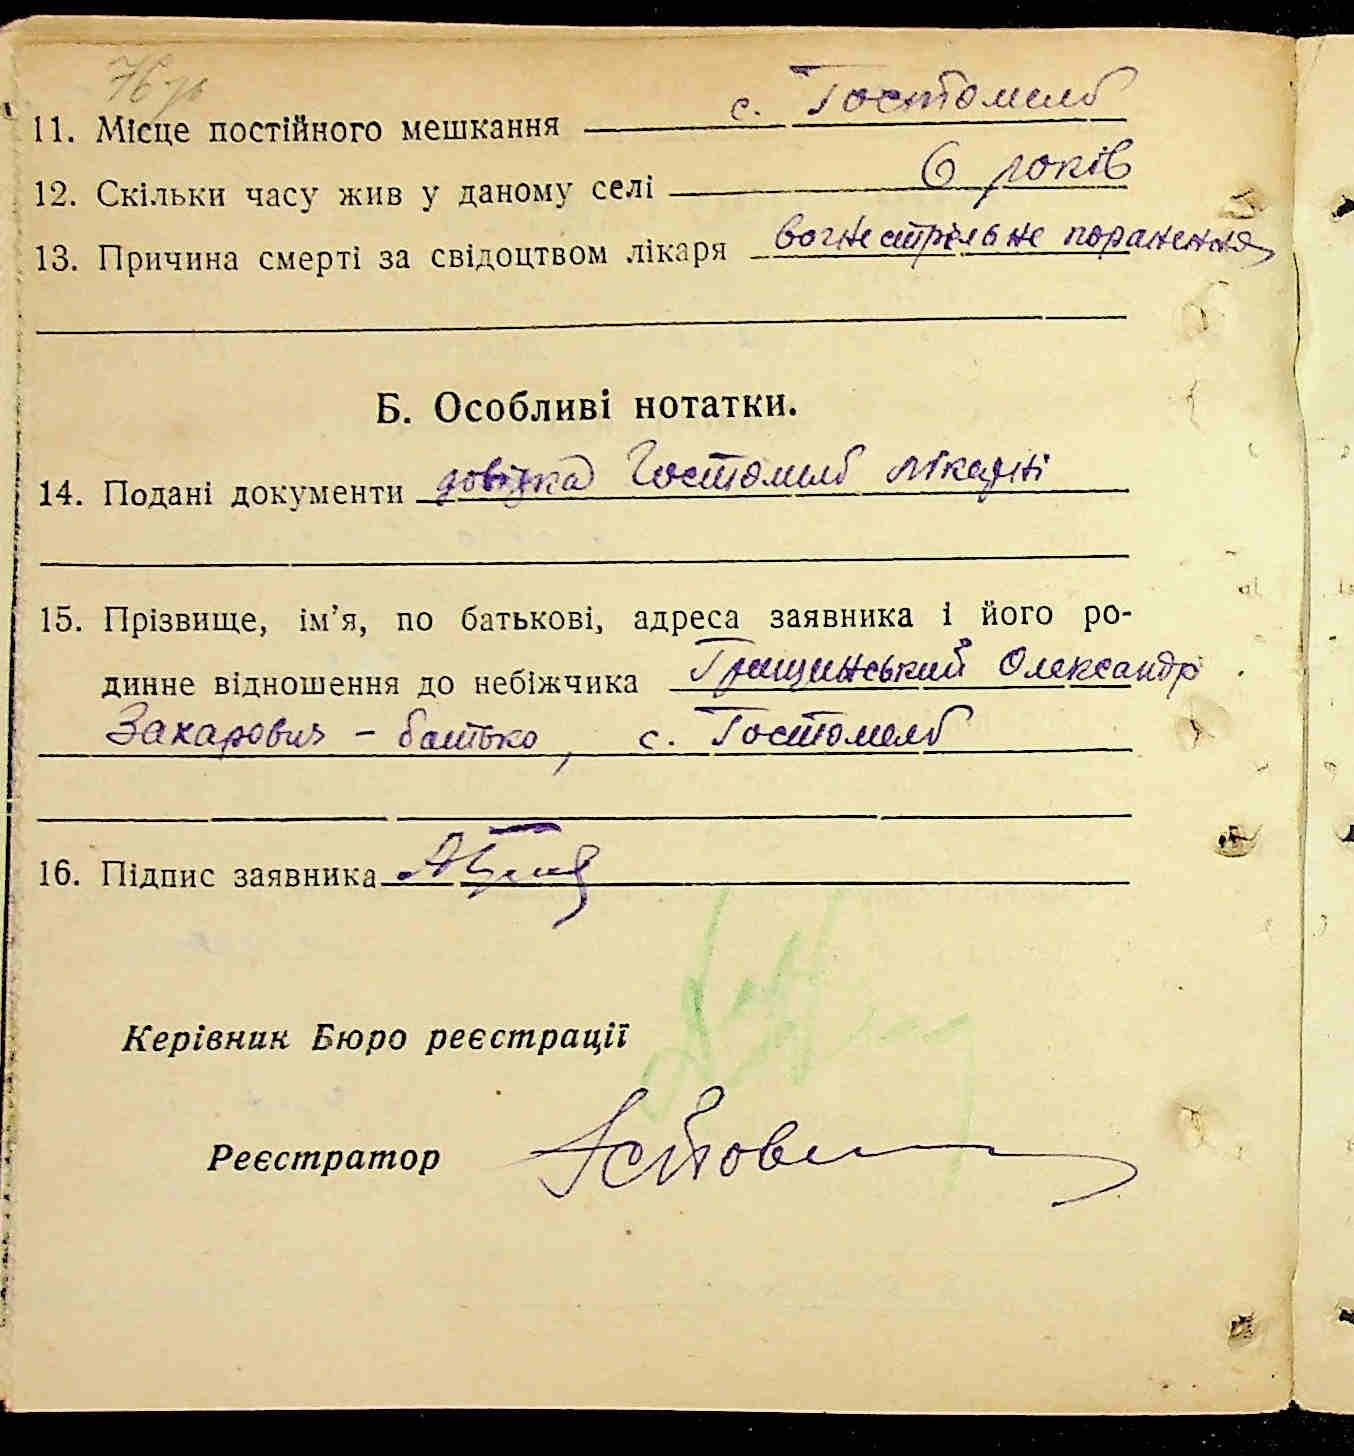 11. Місце постійного мешкання с. Гостомель
12. Скільки часу жив у даному селі 6 років
13. Причина смерті за свідоцтвом лікаря вогнестрільне поранення
Б. Особливі нотатки.
14. Подані документи довідка Гостомель лікарні
15. Прізвище, ім'я, по батькові, адреса заявника і його ро-
динне відношення до небіжчика Грищинський Олександр
Захарович - батько, с. Гостомель
16. Підпис заявника
Керівник Бюро реєстрації
Реєстратор